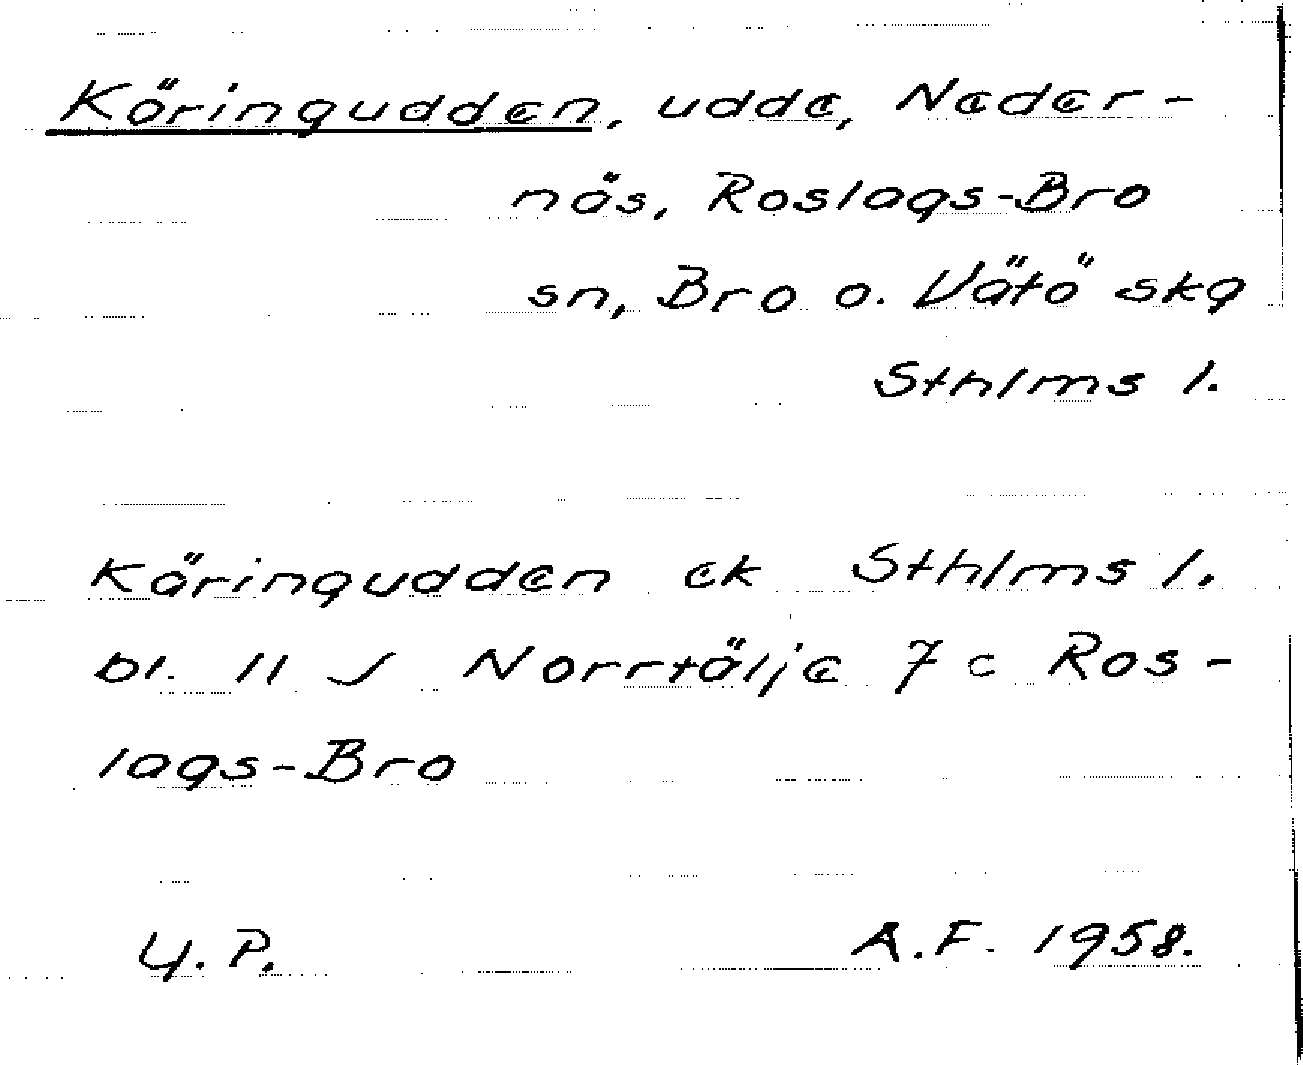 Käringudden, udde, Neder-
näs, Roslags-Bro
sn, Bro o. Vätö skg
Sthlms l.
Käringudden ek Sthlms l.
bl. 11 J Norrtälje 7 c Ros-
lags-Bro
Y. P. A.F. 1958.